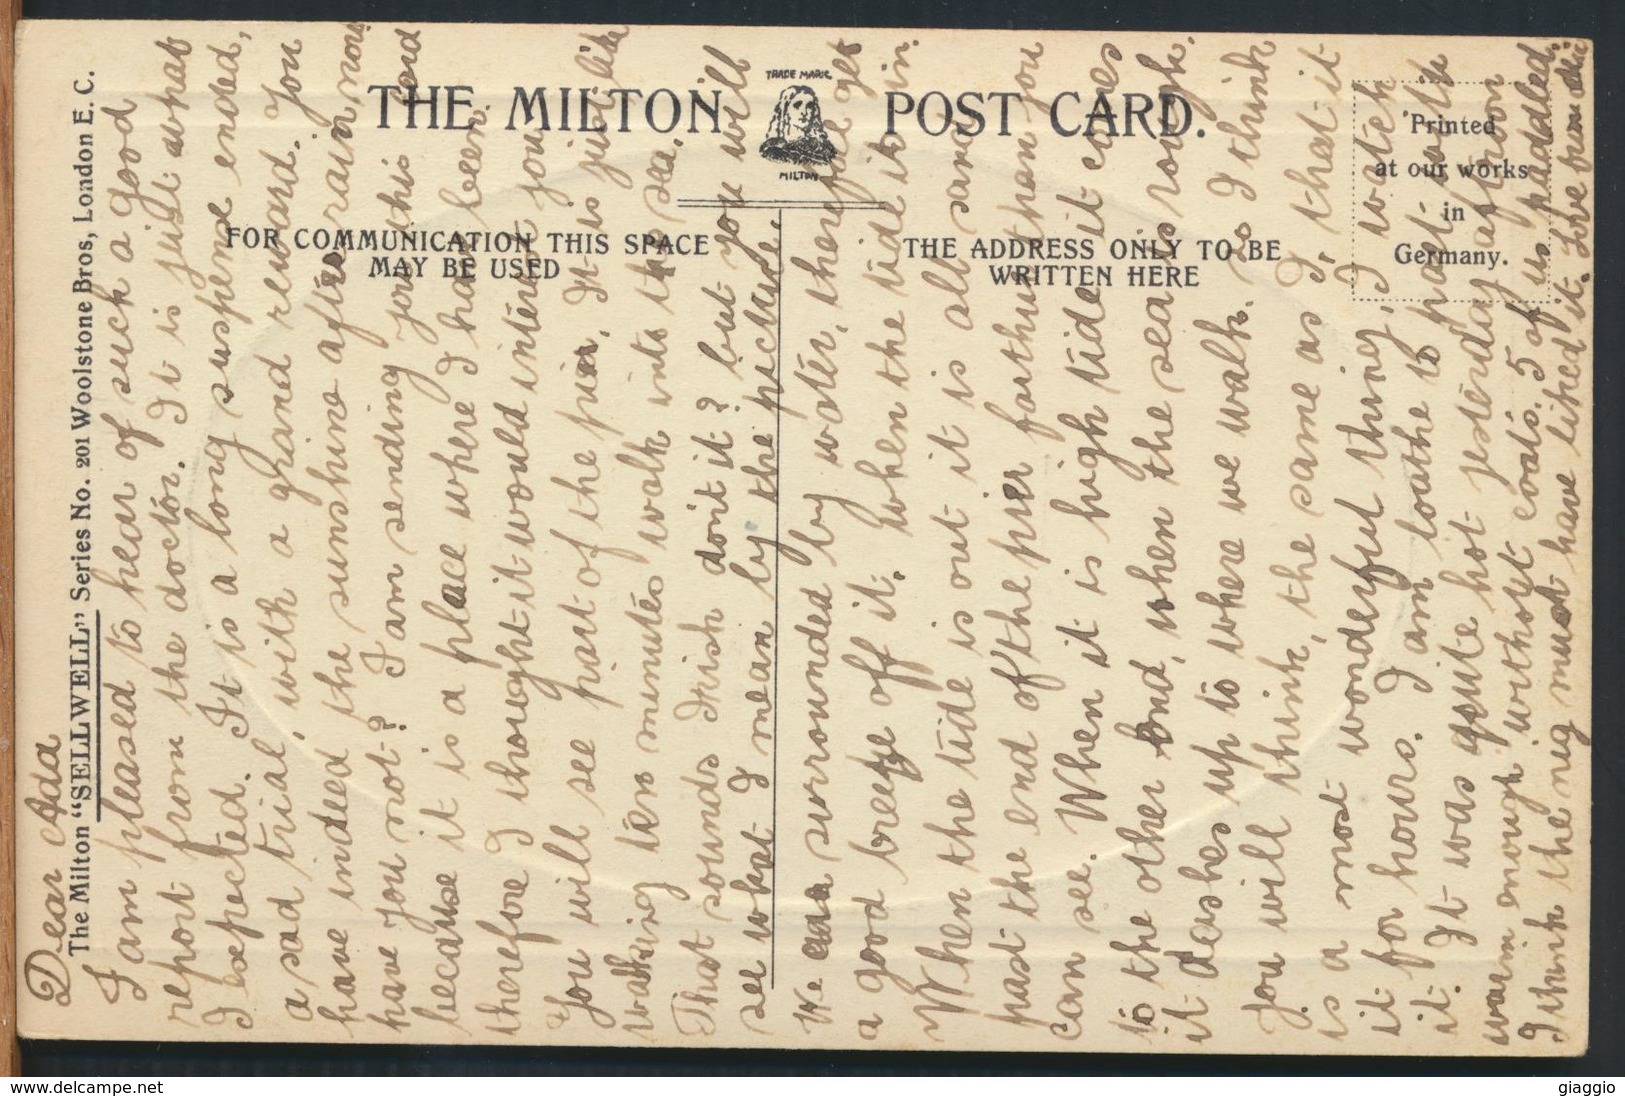 The Milton "SELLWELL" Series No. 201 Woolstone Bros, London E. C.
THE MILTON POST CARD.
TRADE MARK
MILTON
FOR COMMUNICATION THIS SPACE
MAY BE USED
THE ADDRESS ONLY TO BE
WRITTEN HERE
Printed
at our works
in
Germany.
Dear Ada
I am pleased to hear of such a good
report from the doctor. It is just what
I expected. It is a long suspense ended,
a sad trial, with a grand reward. You
have indeed the sunshine after rain now
have you not? I am sending you this card
because it is a place where I have been
therefore I thought it would interest you
You will see part of the pier. It is just like
walking ten minutes walk into the sea.
That sounds Irish don't it? but you will
see what I mean by the picture.
We are surrounded by water, therefore get
a good breeze off it. When the tide is in.
When the tide is out it is all sand
past the end of the pier farther than you
can see. When it is high tide it comes
to the other end, when the sea is rough.
it dashes up to where we walk. So I think
you will think, the same as I, that it
is a most wonderful thing, I watch
it for hours. I am loathe to part with
it. It was quite hot yesterday afternoon
warm enough without coats. 5 of us paddled.
I think the nig must have liked it. Love from